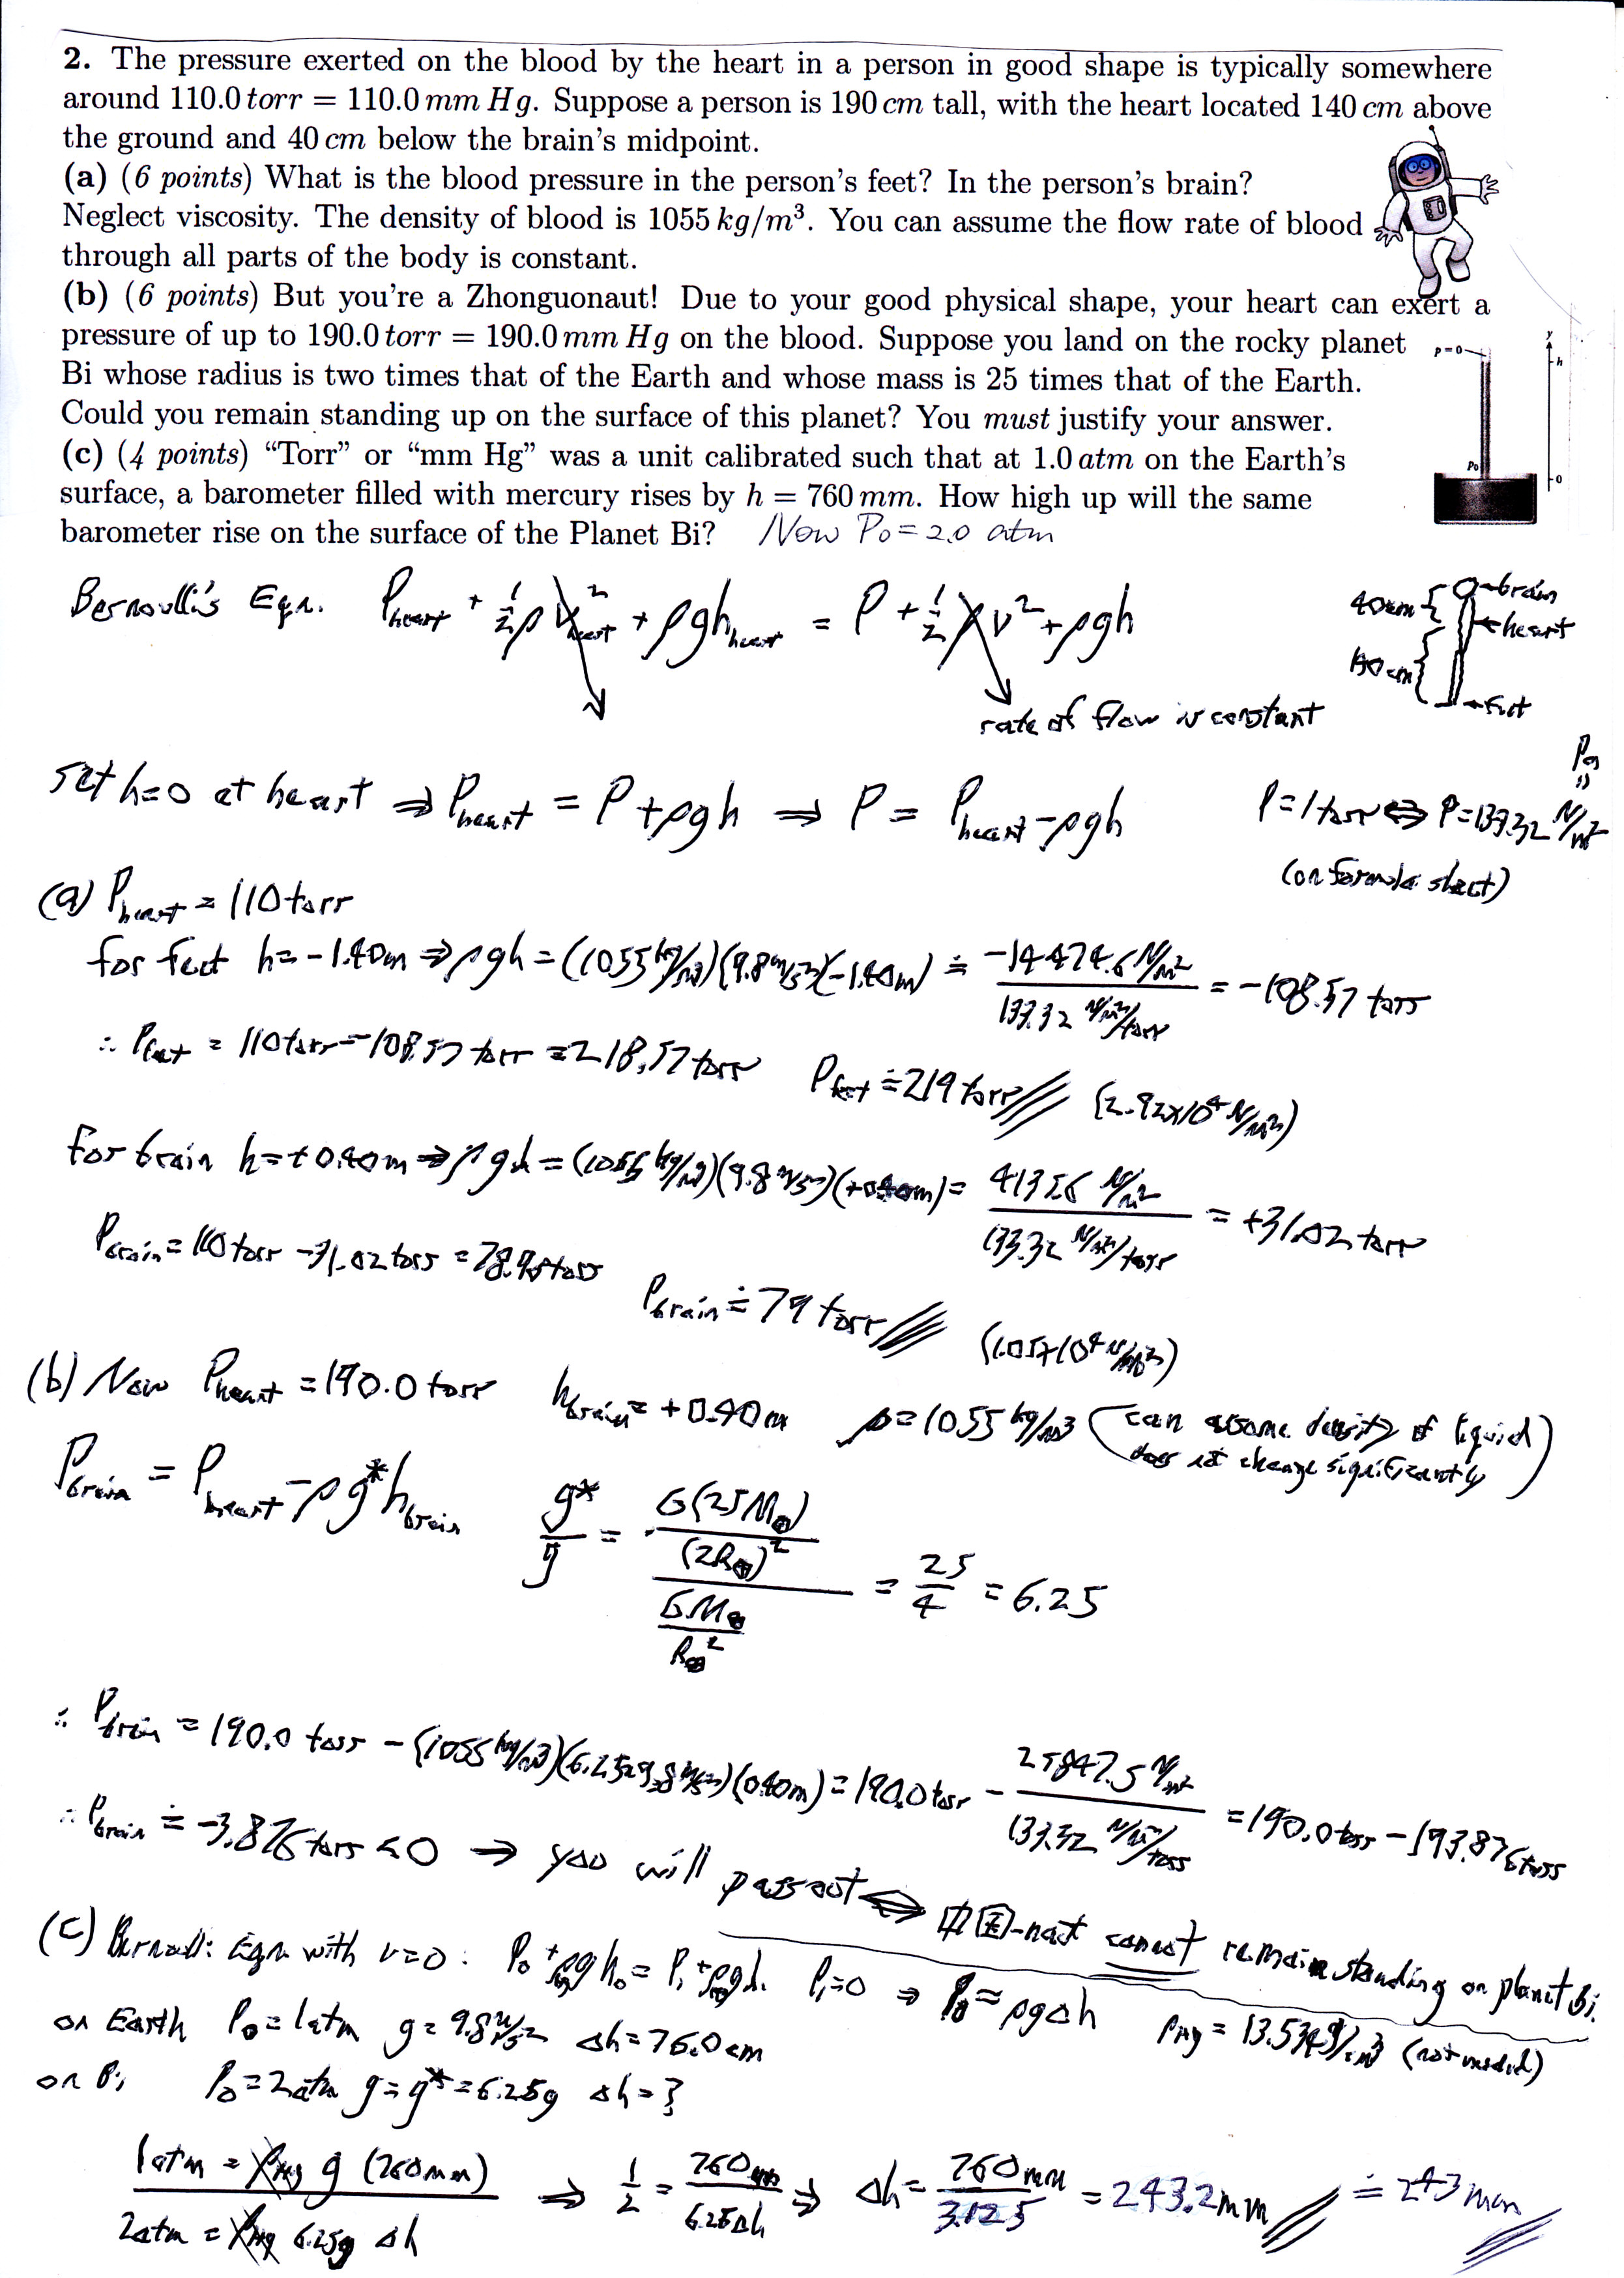 2. The pressure exerted on the blood by the heart in a person in good shape is typically somewhere
around 110.0 torr = 110.0 mm Hg. Suppose a person is 190 cm tall, with the heart located 140 cm above
the ground and 40 cm below the brain's midpoint.
(a) (6 points) What is the blood pressure in the person's feet? In the person's brain?
Neglect viscosity. The density of blood is 1055 kg/m³. You can assume the flow rate of blood
through all parts of the body is constant.
(b) (6 points) But you're a Zhonguonaut! Due to your good physical shape, your heart can exert a
pressure of up to 190.0 torr = 190.0 mm Hg on the blood. Suppose you land on the rocky planet
Bi whose radius is two times that of the Earth and whose mass is 25 times that of the Earth.
Could you remain standing up on the surface of this planet? You must justify your answer.
(c) (4 points) "Torr" or "mm Hg" was a unit calibrated such that at 1.0 atm on the Earth's
surface, a barometer filled with mercury rises by h = 760 mm. How high up will the same
barometer rise on the surface of the Planet Bi? Now P₀ = 2.0 atm
p=0
y
h
P₀
0
Bernoulli's Eqn. P_heart + ½ρv²_heart + ρgh_heart = P + ½ρv² + ρgh
40cm brain
heart
140cm
feet
rate of flow is constant
set h=0 at heart ⇒ P_heart = P + ρgh ⇒ P = P_heart - ρgh
P=1torr ⇔ P=133.32 N/m²
Pa
(on formula sheet)
(a) P_heart = 110torr
for feet h=-1.40m ⇒ ρgh = (1055 kg/m³)(9.8 m/s²)(-1.40m) ≐ -14474.6 N/m² / 133.32 N/m²/torr = -108.57 torr
∴ P_feet = 110torr - -108.57 torr = 218.57 torr P_feet ≐ 219 torr (2.92x10⁴ N/m²)
for brain h=+0.40m ⇒ ρgh = (1055 kg/m³)(9.8 m/s²)(+0.40m) = 4135.6 N/m² / 133.32 N/m²/torr = +31.02 torr
P_brain = 110 torr - 31.02 torr = 78.98 torr
P_brain ≐ 79 torr (1.05x10⁴ N/m²)
(b) Now P_heart = 190.0 torr h_brain = +0.40m ρ=1055 kg/m³ (can assume density of liquid
does not change significantly)
P_brain = P_heart - ρg*h_brain g*/g = G(25M⊕)/(2R⊕)² / GM⊕/R⊕² = 25/4 = 6.25
∴ P_brain = 190.0 torr - (1055 kg/m³)(6.25x9.8 m/s²)(0.40m) = 190.0 torr - 25847.5 N/m² / 133.32 N/m²/torr = 190.0 torr - 193.876 torr
∴ P_brain ≐ -3.876 torr < 0 → you will pass out ⇔ 中国-naut cannot remain standing on planet Bi.
(c) Bernoulli Eqn with v=0: P₀ + ρgh₀ = P₁ + ρgh₁ P₁=0 ⇒ P₀ = ρgΔh
ρ_Hg = 13.534 g/cm³ (not needed)
on Earth P₀ = 1atm g = 9.8 m/s² Δh = 76.0cm
on Bi P₀ = 2atm g = g* = 6.25g Δh = ?
1atm = ρ_Hg g (760mm) ⇒ 1/2 = 760mm / 6.25Δh ⇒ Δh = 760mm / 3.125 = 243.2mm ≐ 243 mm
2atm = ρ_Hg 6.25g Δh